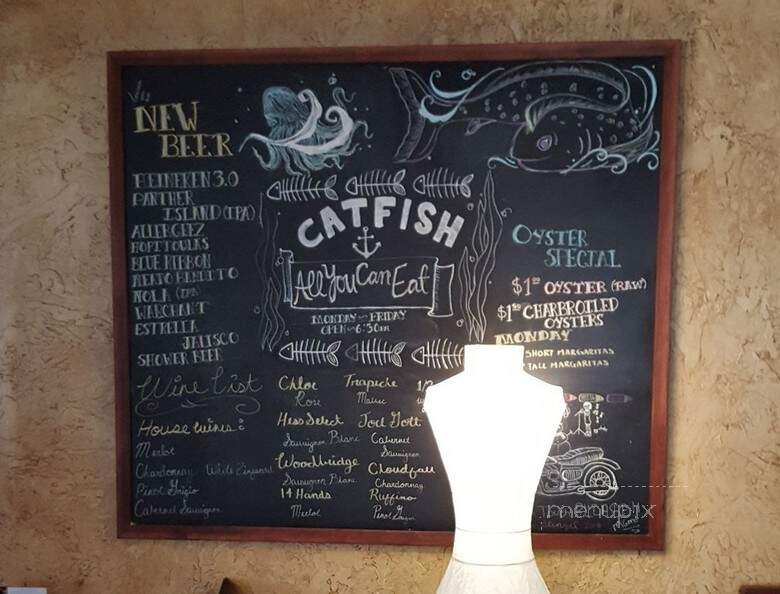 NEW
BEER
HEINEKEN 3.0
PANTHER
ISLAND (IPA)
ALLERGEEZ
HOPTTOULKS
BLUE RIBBON
NEATO BANDITO
NOLA (IPA)
WARCHANT
ESTRELLA
JALISCO
SHOWER BEER
CATFISH
All You Can Eat
MONDAY - FRIDAY
OPEN - 6:30
OYSTER
SPECIAL
$1 OYSTER (RAW)
$1 CHARBROILED
OYSTERS
MONDAY
SHORT MARGARITAS
TALL MARGARITAS
Wine List
House wines:
Merlot
Chardonnay White Zinfandel
Pinot Grigio
Cabernet Sauvignon
Chloe
Rose
Hess Select
Sauvignon Blanc
Woodbridge
Sauvignon Blanc
14 Hands
Merlot
Trapiche
Malbec
Joel Gott
Cabernet
Sauvignon
Cloudfall
Chardonnay
Ruffino
Pinot Grigio
menupix